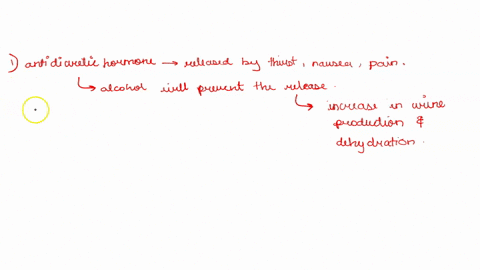 1) antidiuretic hormone → released by thirst, nausea, pain.
↳ alcohol will prevent the release.
↳ increase in urine
production &
dehydration.